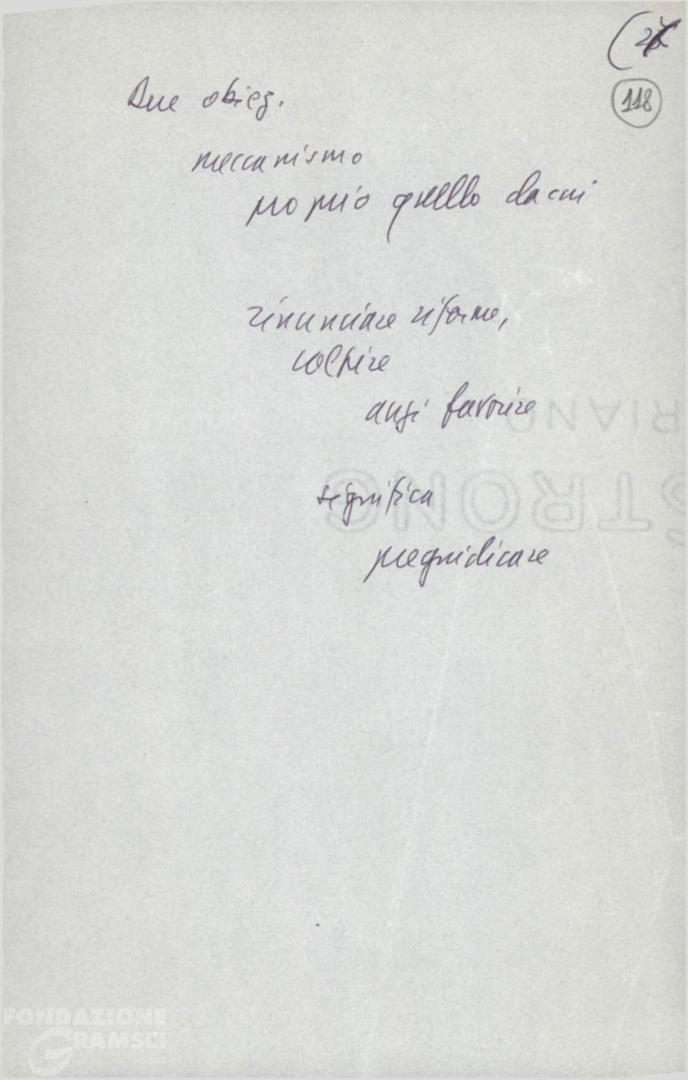 118
Due obiez.
meccanismo
proprio quello da cui
rinunciare riforme,
colpire
anzi favorire
significa
pregiudicare
RIANO
STRONG
FONDAZIONE
GRAMSCI